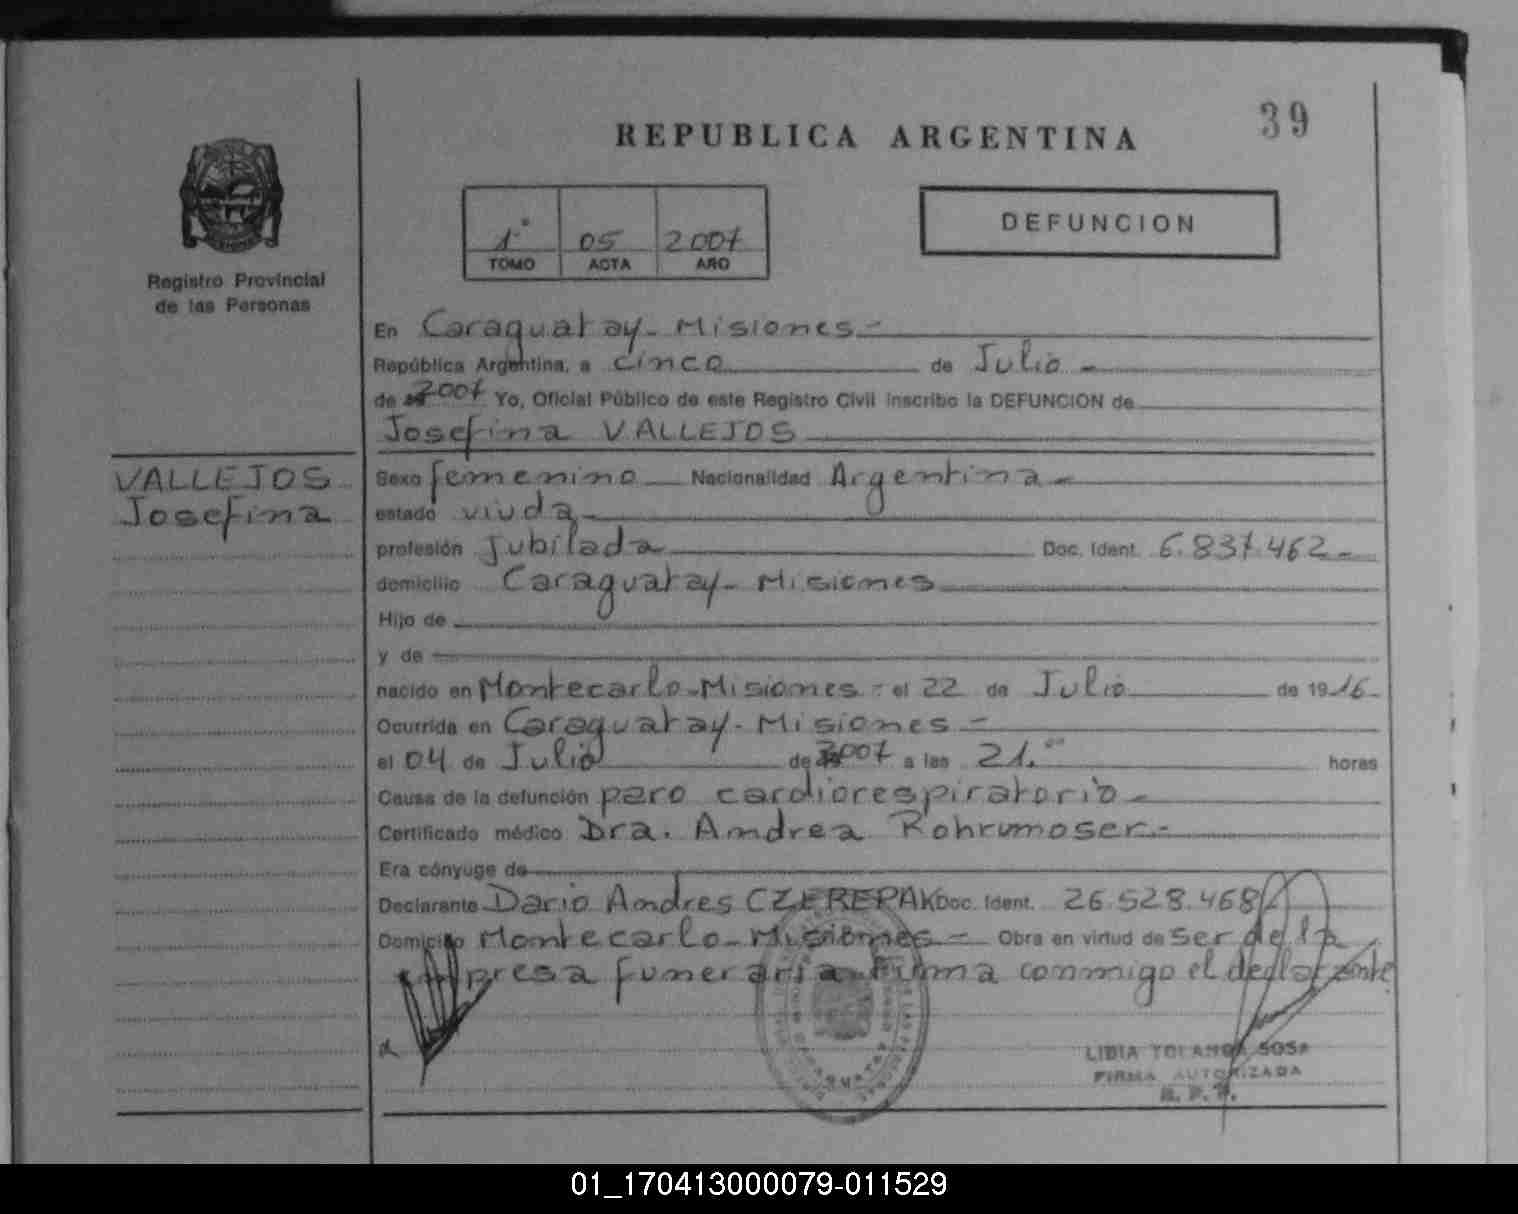 39
REPUBLICA ARGENTINA
1º 05 2007
TOMO ACTA AÑO
DEFUNCION
Registro Provincial
de las Personas
En Caraguatay - Misiones -
República Argentina, a cinco de Julio -
de 2007 Yo, Oficial Público de este Registro Civil inscribo la DEFUNCION de
Josefina VALLEJOS
VALLEJOS
Josefina
Sexo femenino Nacionalidad Argentina -
estado viuda
profesión Jubilada Doc. Ident. 6.837.462 -
domicilio Caraguatay - Misiones
Hijo de
y de
nacido en Montecarlo - Misiones - el 22 de Julio de 1916 -
Ocurrida en Caraguatay - Misiones -
el 04 de Julio de 2007 a las 21.ºº horas
Causa de la defunción paro cardiorespiratorio -
Certificado médico Dra. Andrea Rohrumoser -
Era cónyuge de
Declarante Dario Andres CZEREPAK Doc. Ident. 26.528.468
Domicilio Montecarlo - Misiones - Obra en virtud de ser de la
empresa funeraria - Firma conmigo el declarante
LIDIA YOLANDA SOSA
FIRMA AUTORIZADA
R. P. P.
01_170413000079-011529